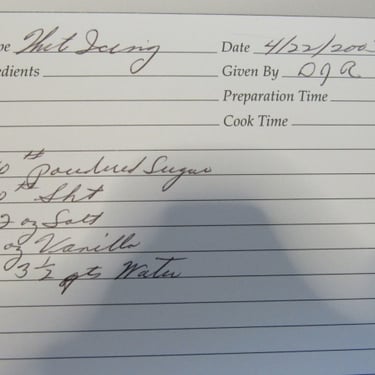 pe Wht Icing Date 4/22/200
edients Given By DJR
Preparation Time
Cook Time
0 # Powdered Sugar
0 # Sht
2 oz Salt
oz Vanilla
3 1/2 qts Water